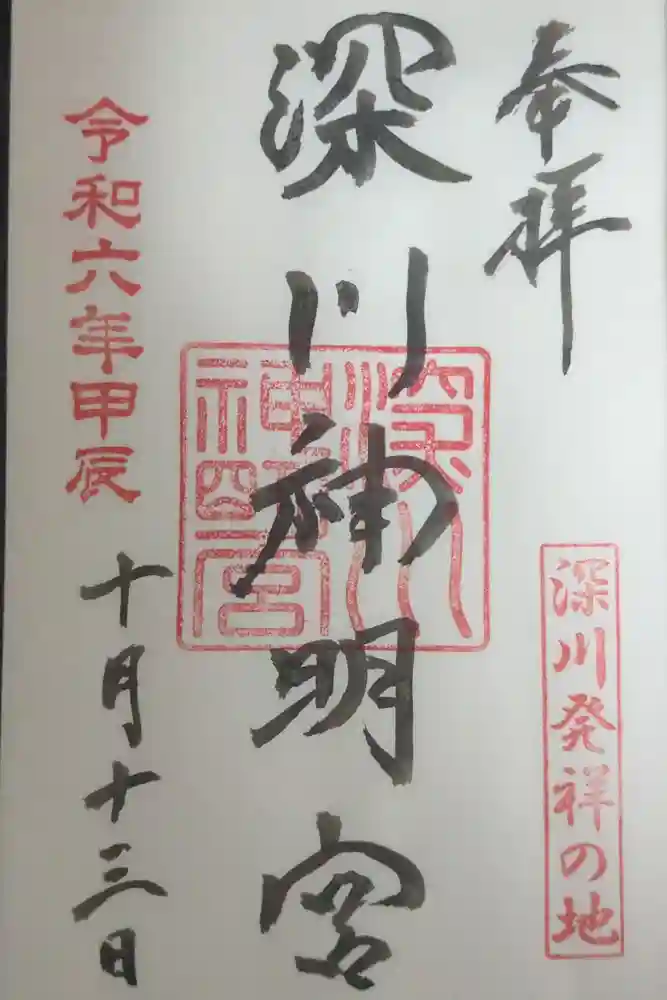 奉拝
深川発祥の地
深川神明宮
令和六年甲辰
十月十三日